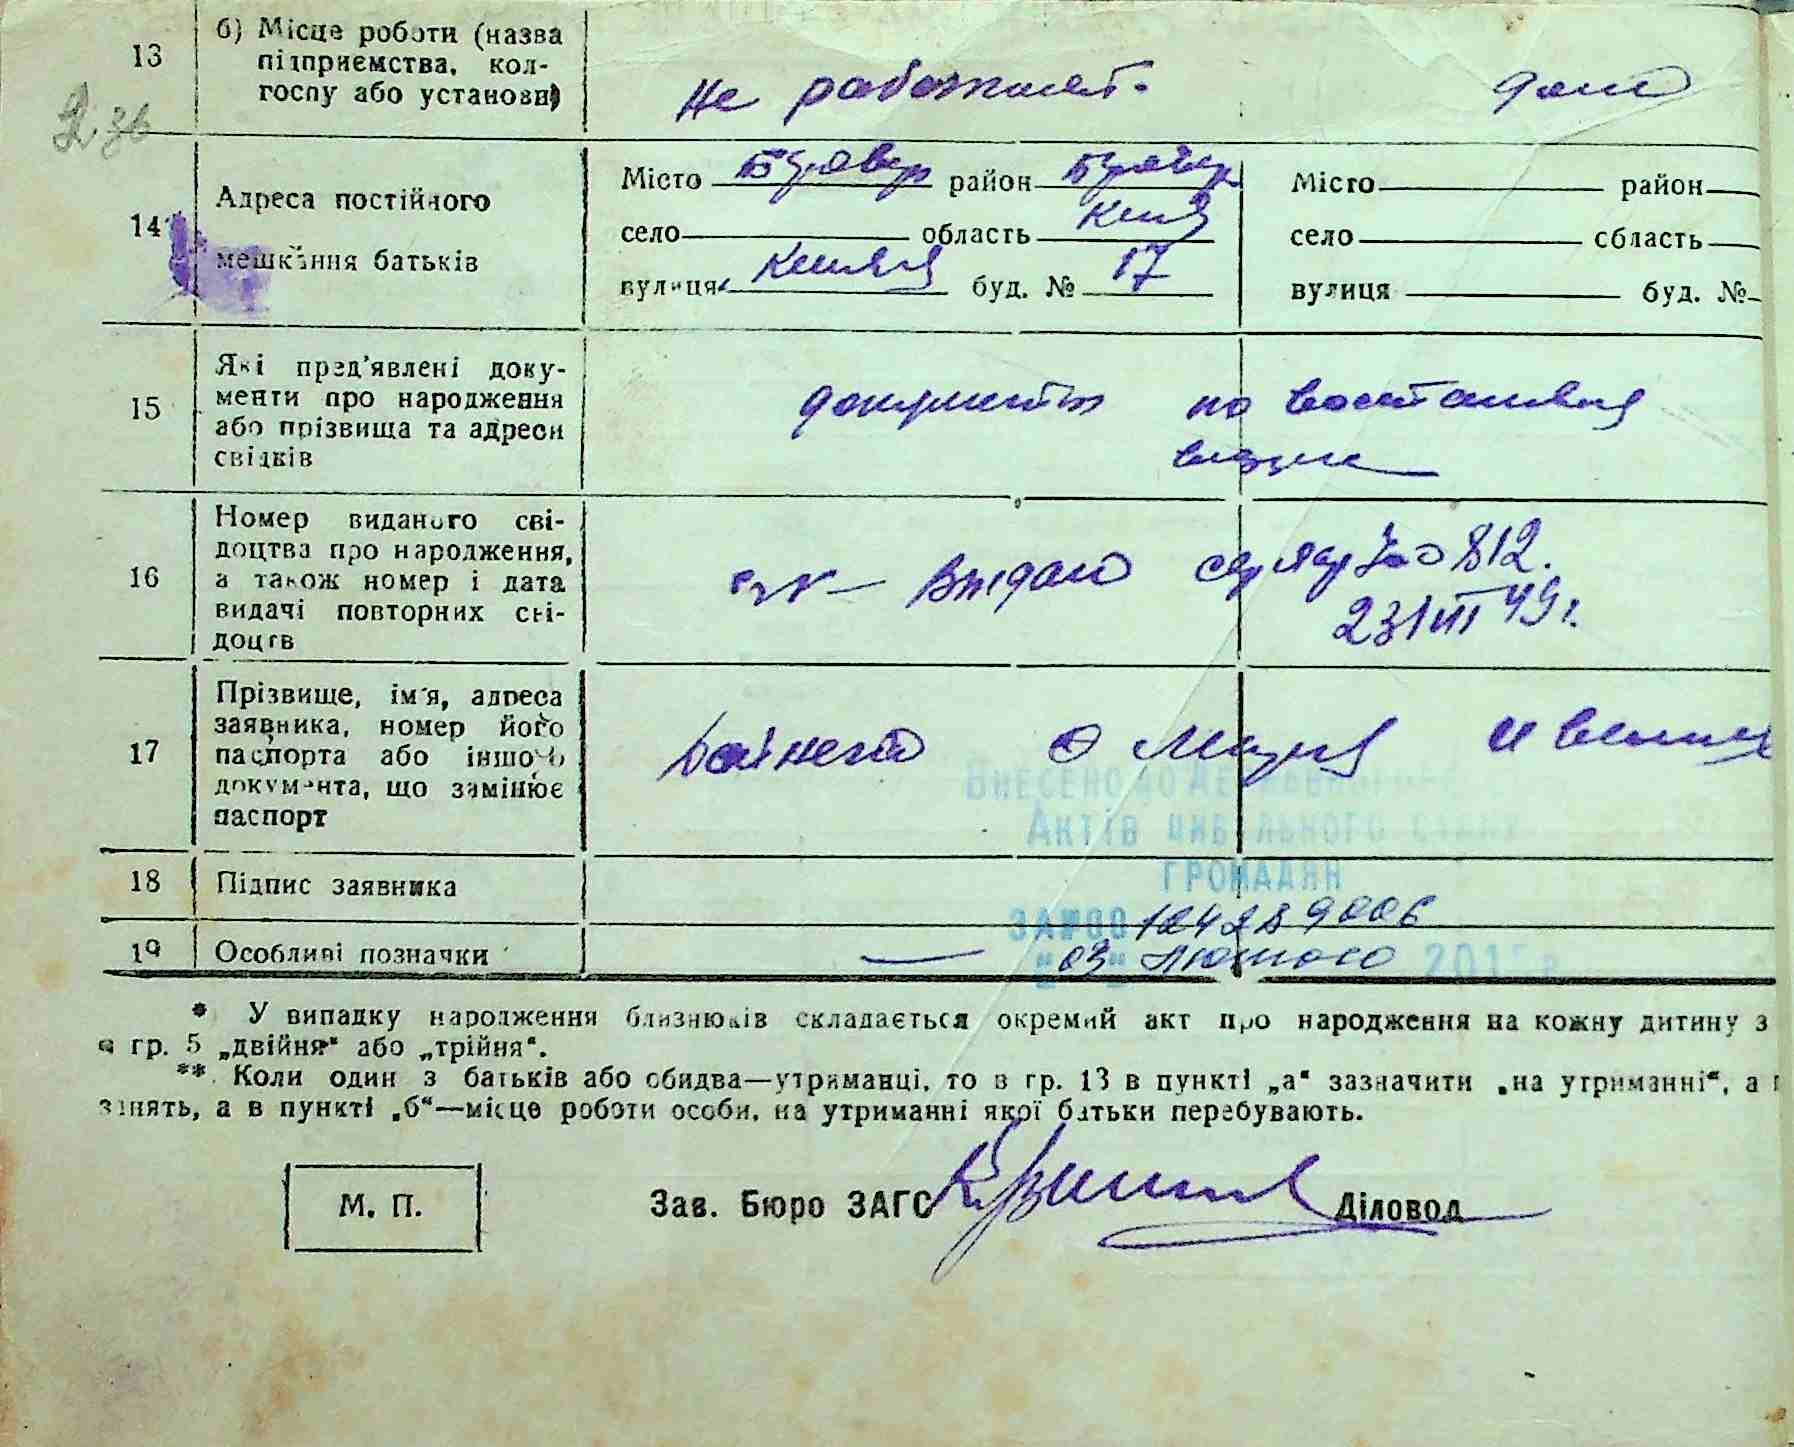 13
б) Місце роботи (назва
підприємства, кол-
госпу або установи)
не работает.
14
Адреса постійного
мешкання батьків
Місто Бровар район Бровар
село область Киев
вулиця буд. № 17
Місто район
село область
вулиця буд. №
15
Які пред'явлені доку-
менти про народження
або прізвища та адреси
свідків
документы по восстановл
16
Номер виданого сві-
доцтва про народження,
а також номер і дата
видачі повторних сві-
доцтв
812.
23/VIII 49 г.
17
Прізвище, ім'я, адреса
заявника, номер його
паспорта або іншого
документа, що замінює
паспорт
Внесено до Державного
Актів цивільного стану
громадян
18
Підпис заявника
19
Особливі позначки
— "03" лютого 201
* У випадку народження близнюків складається окремий акт про народження на кожну дитину з
в гр. 5 „двійня“ або „трійня“.
** Коли один з батьків або обидва—утриманці, то в гр. 13 в пункті „а“ зазначити „на утриманні“, а
занять, а в пункті „б“—місце роботи особи, на утриманні якої батьки перебувають.
М. П.
Зав. Бюро ЗАГС Діловод